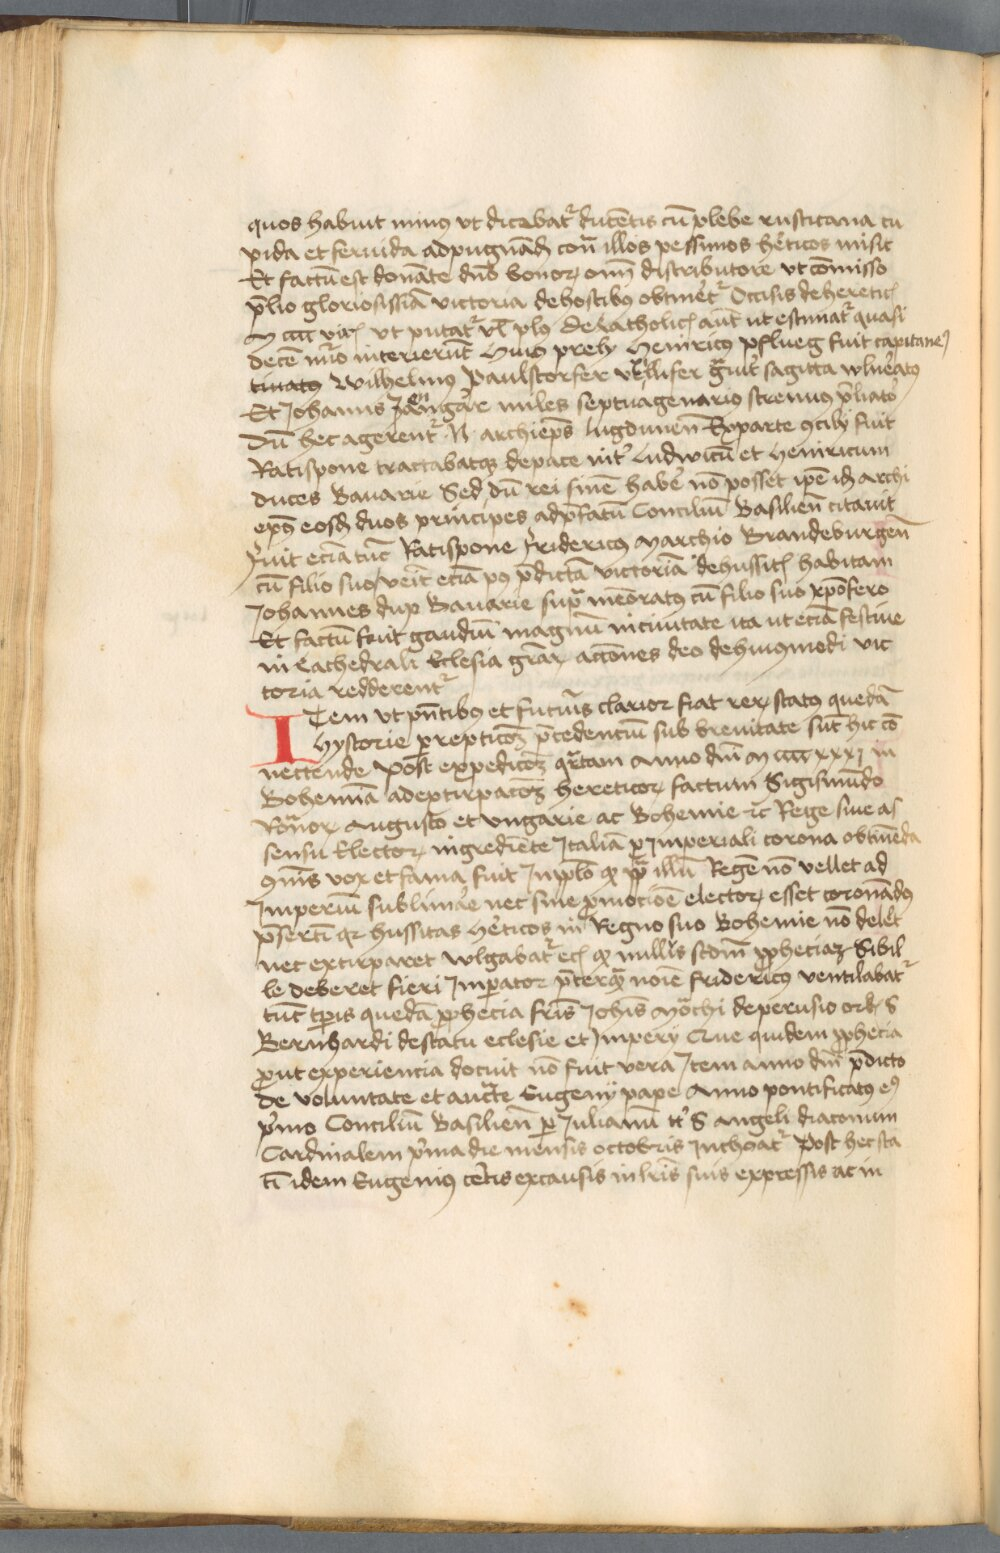 quos habuit minus vt dicebat᷑ ducētis cū plebe rusticana cu
pida et feruida ad pugnād cōn illos pessimos hēticos misit
Et factū est donāte dn̄o bonoꝝ om̄i distributore vt cōmisso
p̄lio gloriosissiā victoria de hostibꝰ obtinet᷑ Occisis de heretic̄
vt putat᷑ vl̄ plꝰ de catholic̄ aūt ut estimat᷑ quasi
decē nūo interierūt Huiꝰ prelij Heinricꝰ Pflueg fuit capitaneꝰ
Wilhelmꝰ Paulstorfer vexillifer gͣuit᷑ sagitta wln̄eatꝰ
Et Johannes Zengᷓer miles septuagenariꝰ strenuꝰ p̄liatoꝛ
Dū hec agerent᷑ N archiep̄s lugdunen̄ Ex parte ꝯcilij fuit
Ratispone tractabatqꝫ de pace int᷑ Ludwicū et Heinricum
duces Bauarie Sed dū rei finē habē nō posset ip̄e id archi
ep̄s eosd duos principes ad p̄fatū Conciliū Basilien̄ citauit
Fuit eciā tūc Ratispone Fridericꝰ Marchio Brandeburgen̄
cū filio suo venit eciā pꝰ p̄dictā victoriā de hussit̄ habitam
Johannes dux Bauarie supͣ meōratꝰ cū filio suo xp̄ofero
Et factū fuit gaudiū magnū in ciuitate ita ut eciā festiue
in Cathedrali Ecclesia gr̄aꝝ acc̄ones deo de huiꝰmodi vic
toria redderent᷑
Item vt pn̄tibꝰ et futuris clarior fiat reꝝ statꝰ quedā
Hystorie p repticōꝫ p̄cedenciū sub breuitate sūt hic cō
nectende Post expedicōꝫ qͣrtam Anno dn̄i M cccc xxxj in
Bohemiā ad extirpacōꝫ hereticoꝝ factum Sigismūdo
Rōnoꝝ Augusto et vngarie ac Bohemie ⁊c̄ Rege siue as
sensu Electoꝝ ingrediēte Italiā p̱ Imperiali corona obtinēda
ꝯmīs vox et fama fuit In pplō qꝫ ꝓptͣ illū Regē nō vellet ad
Imperiū sublimāe nec siue p̱mocioē electoꝝ esset coronādꝰ
p̄sertī qꝛ hussitas hēticos in Regno suo Bohemie nō delēt
nec extirparet wlgabat᷑ ec̄ qꝫ nullꝰ scd̄m ꝓpheciaꝫ Sibil
le deberet fieri Impator p̄terqͣ noīe fridericꝰ ventilabat᷑
tūc tp̄is quedā ꝓphecia fr̄is Joh̄is Monͣchi de perusio ord S
Bernhardi de statu eclesie et Imperij Que quidem ꝓphecia
ꝓut experiencia docuit nō fuit vera Item anno dn̄i p̄dicto
de voluntate et auctͣte Eugenij pape Anno pontificatꝰ eꝰ
p̄mo Conciliū Basilien̄ p̱ Julianū tt᷑ S Angeli diaconum
Cardinalem p̄ma die mensis octobris Inchoat᷑ Post hec sta
tī idem Eugeniꝰ cētis ex causis in lr̄is suis expressis ac in